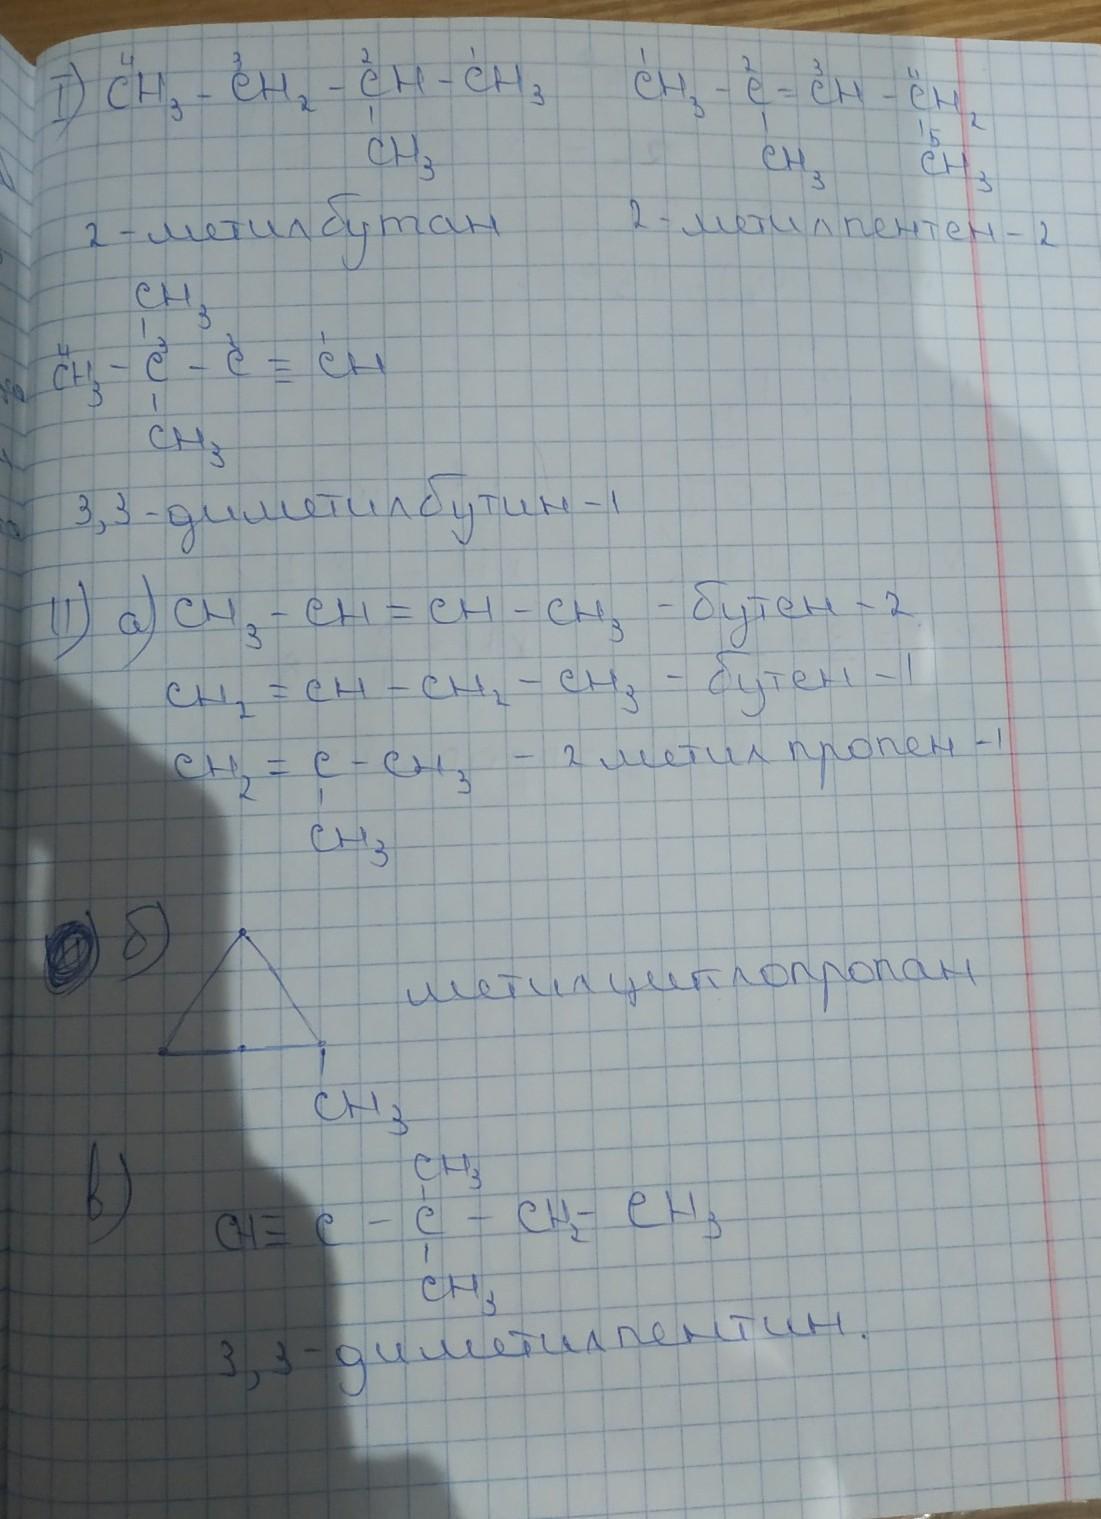 I) CH₃ - CH₂ - CH - CH₃ CH₃ - C = CH - CH₂
4 3 2 1 1 2 3 4
CH₃ CH₃ 5 CH₃
2-метилбутан 2-метилпентен-2
CH₃
CH₃ - C - C ≡ CH
4 3 1
CH₃
3,3-диметилбутин-1
II) а) CH₃ - CH = CH - CH₃ - бутен-2
CH₂ = CH - CH₂ - CH₃ - бутен-1
CH₂ = C - CH₃ - 2 метил пропен-1
CH₃
б)
метилциклопропан
CH₃
в)
CH₃
CH≡ C - C - CH₂- CH₃
CH₃
3,3-диметилпентин.